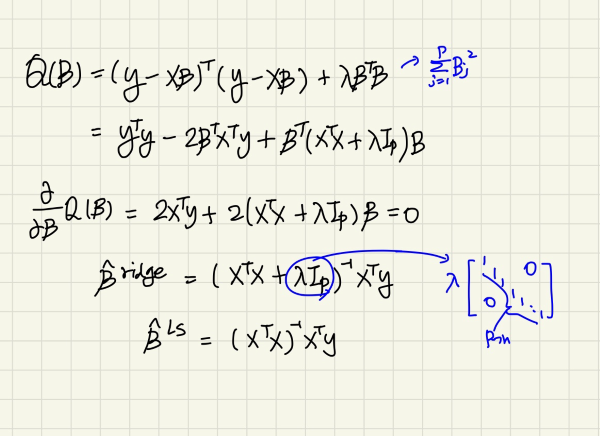 Q(β) = (y − Xβ)ᵀ(y − Xβ) + λβᵀβ → Σⱼ₌₁ᵖ βⱼ²
= yᵀy − 2βᵀXᵀy + βᵀ(XᵀX + λIₚ)β
∂/∂β Q(β) = 2Xᵀy + 2(XᵀX + λIₚ)β = 0
β̂ ridge = (XᵀX + λIₚ)⁻¹Xᵀy → λ [1 1 1 0 0 1 1 . . 1]
β̂ LS = (XᵀX)⁻¹Xᵀy